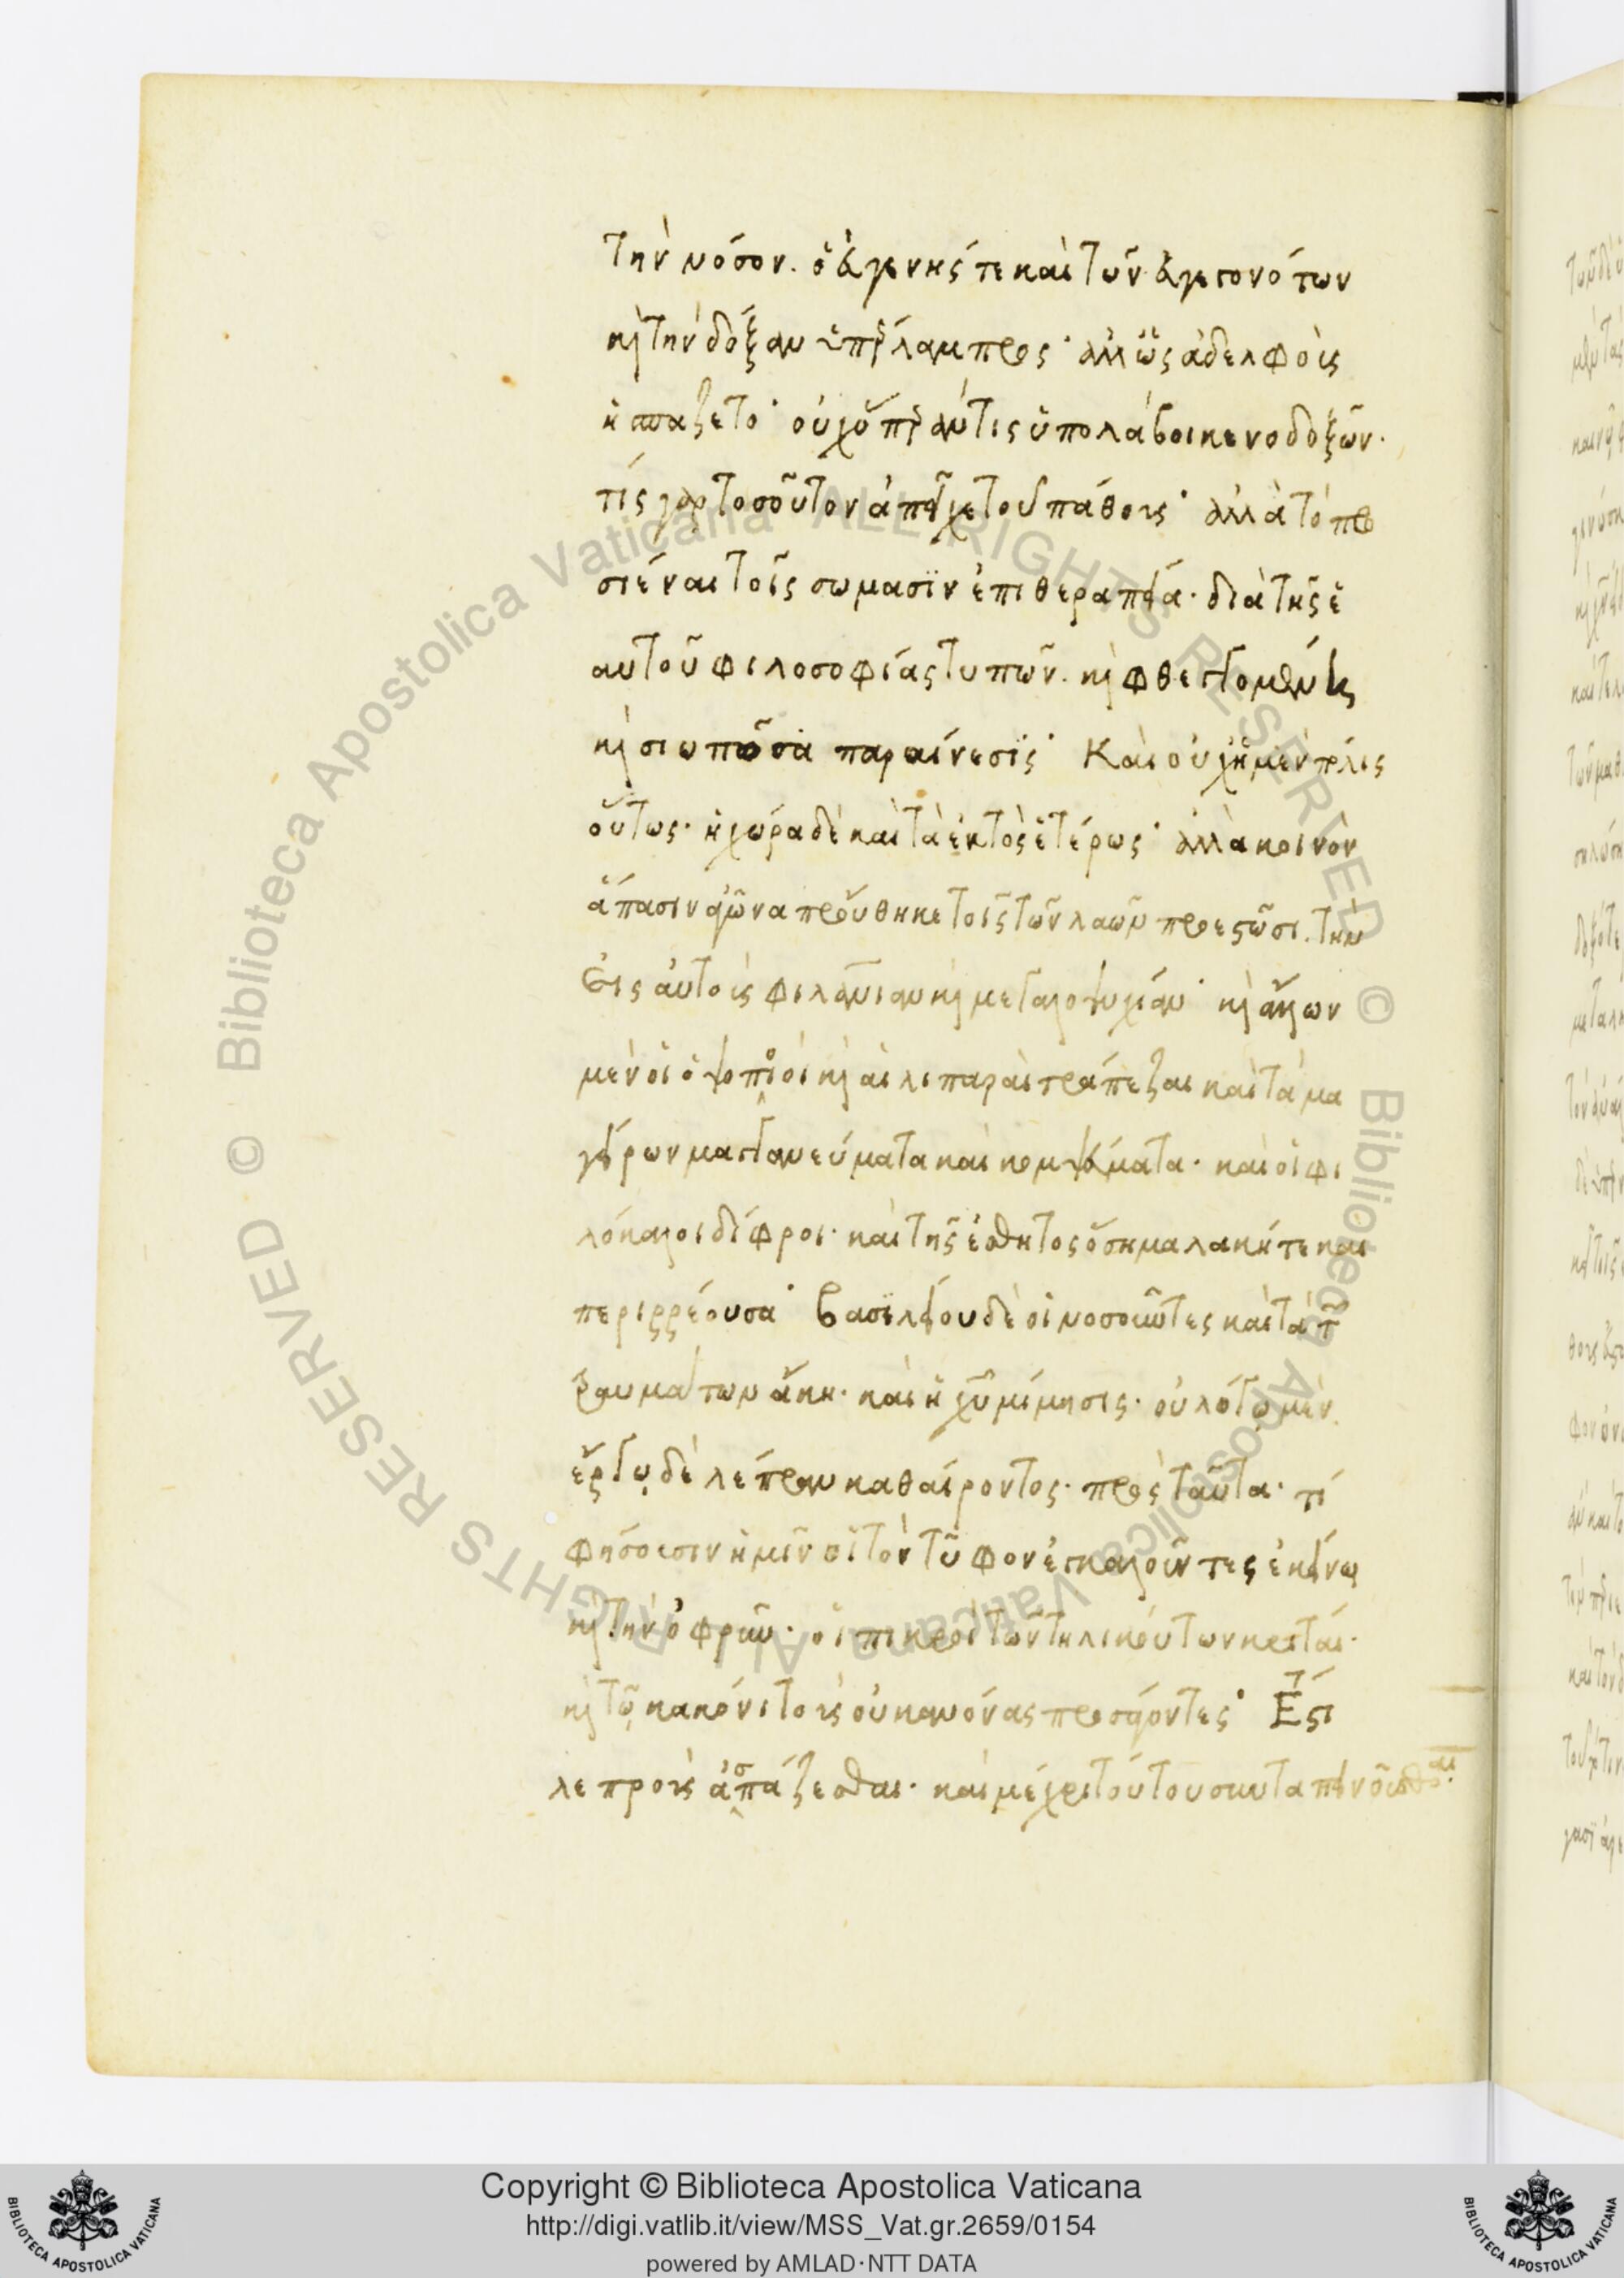 την νόσον. ὁ εὐγενής τε καὶ τῶν εὐγεγονότων
καὶ τὴν δόξαν ὑπέρλαμπρος· ἀλλ' ὡς ἀδελφοὺς
ἠσπάζετο· οὐχ ὅπερ ἄν τις ὑπολάβοι κενοδοξῶν·
τίς γὰρ τοσοῦτον ἀπεῖχε τοῦ πάθους· ἀλλὰ τὸ προ
σιέναι τοῖς σώμασϊν ἐπι θεραπεία· διὰ τῆς ἑ
αυτοῦ φιλοσοφίας τυπῶν. καὶ φθεγγομένη
καὶ σιωπῶσα παραίνεσϊς· Καὶ οὐχ ἡ μὲν πόλις
οὕτως· ἡ χώρα δὲ καὶ τὰ ἐκτὸς ἑτέρως· ἀλλὰ κοινὸν
ἅπασιν ἀγῶνα προὔθηκε τοῖς τῶν λαῶν προεστῶσι. τὴν
εἰς αὐτοὺς φιλανθρωπίαν καὶ μεγαλοψυχίαν· καὶ ἄλλων
μὲν οἱ ὀψοποιοὶ καὶ αἱ λιπαραὶ τράπεζαι καὶ τὰ μα
γείρων μαγγανεύματα καὶ κομψεύματα· καὶ οἱ φι
λόκαλοι δίφροι· καὶ τῆς ἐσθῆτος ὅση μαλακή τε καὶ
περιρρέουσα· βασιλείου δὲ οἱ νοσοῦντες καὶ τὰ τῶν
τραυμάτων ἄκη· καὶ ἡ χυ μίμησις· οὐ λόγῳ μὲν.
ἔργῳ δὲ λέπραν καθαίροντος· πρὸς ταῦτα· τί
φήσουσιν ἡμῖν οἱ τὸν τῦφον ἐγκαλοῦντες ἐκείνῳ
καὶ τὴν ὀφρῦν· οἱ πικροὶ τῶν τηλικούτων κριταὶ·
καὶ τῷ κανόνι τοὺς οὐ κανόνας προσάγοντες· Ἔστι
λεπροὺς ἀσπάζεσθαι· καὶ μέχρι τούτου συνταπεινοῦσθαι·
Copyright © Biblioteca Apostolica Vaticana
http://digi.vatlib.it/view/MSS_Vat.gr.2659/0154
powered by AMLAD·NTT DATA